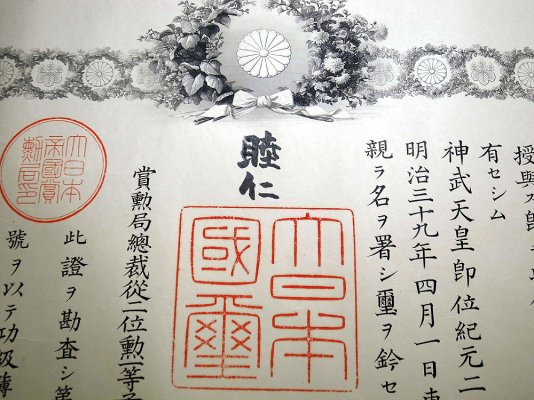 授與ス即
有セシム
神武天皇即位紀元二
明治三十九年四月一日
親ラ名ヲ署シ璽ヲ鈐セ
睦仁
大日本
國璽
賞勲局總裁從一位勲一等
大日本
帝國賞
勲局印
此證ヲ勘査シ第
號ヲ以テ功級簿